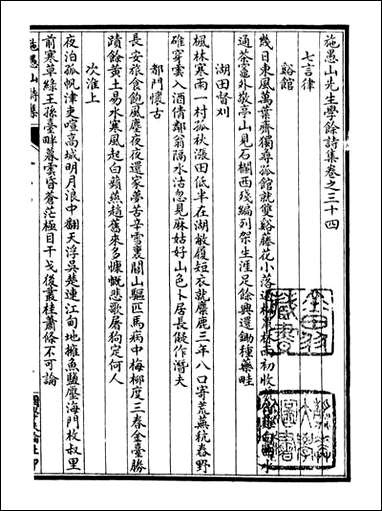 施愚山先生學餘詩集卷之三十四
七言律
谿館
幾日東風萬葉齊獨尋孤館就雙谿藤花小落 雨初收
通茶竈外敬亭山見石欄西殘編列架生涯足餘興還鋤種藥畦
湖田督刈
楓林寒雨一村孤秋漲田低半在湖敝履短衣就麋鹿三年八口寄荒蕪秔舂野
碓穿雲入酒倩鄰翁隔水沽忽見麻姑好山色卜居長擬作潛夫
都門懷古
長安旅食飽風塵夜夜還家夢苦辛雪裏關山驅匹馬病中梅柳度三春金臺勝
蹟餘黃土易水寒風起白蘋燕趙舊來多慷慨悲歌屠狗定何人
次淮上
夜泊孤帆津吏喧高城明月浪中翻天浮吳楚連江甸地擁魚鹽壓海門枚叔里
前寒草綠王孫臺畔暮雲昏蒼茫極目干戈後叢桂蕭條不可論
施愚山詩集